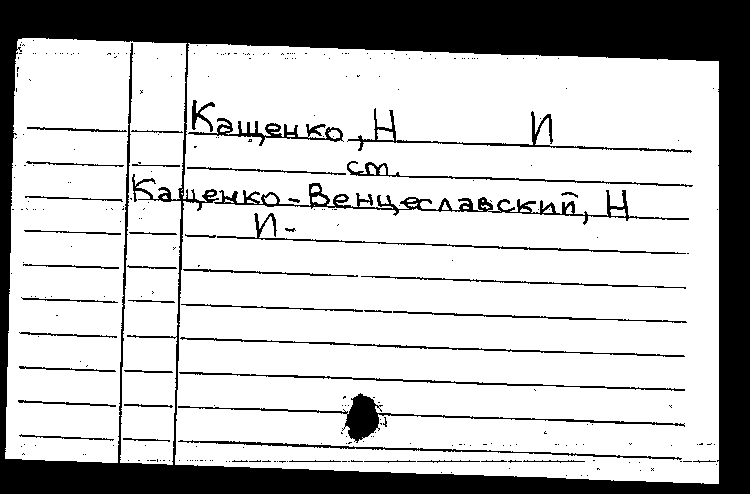 Кащенко, Н И
ст.
Кащенко-Венцеславский, Н
И-